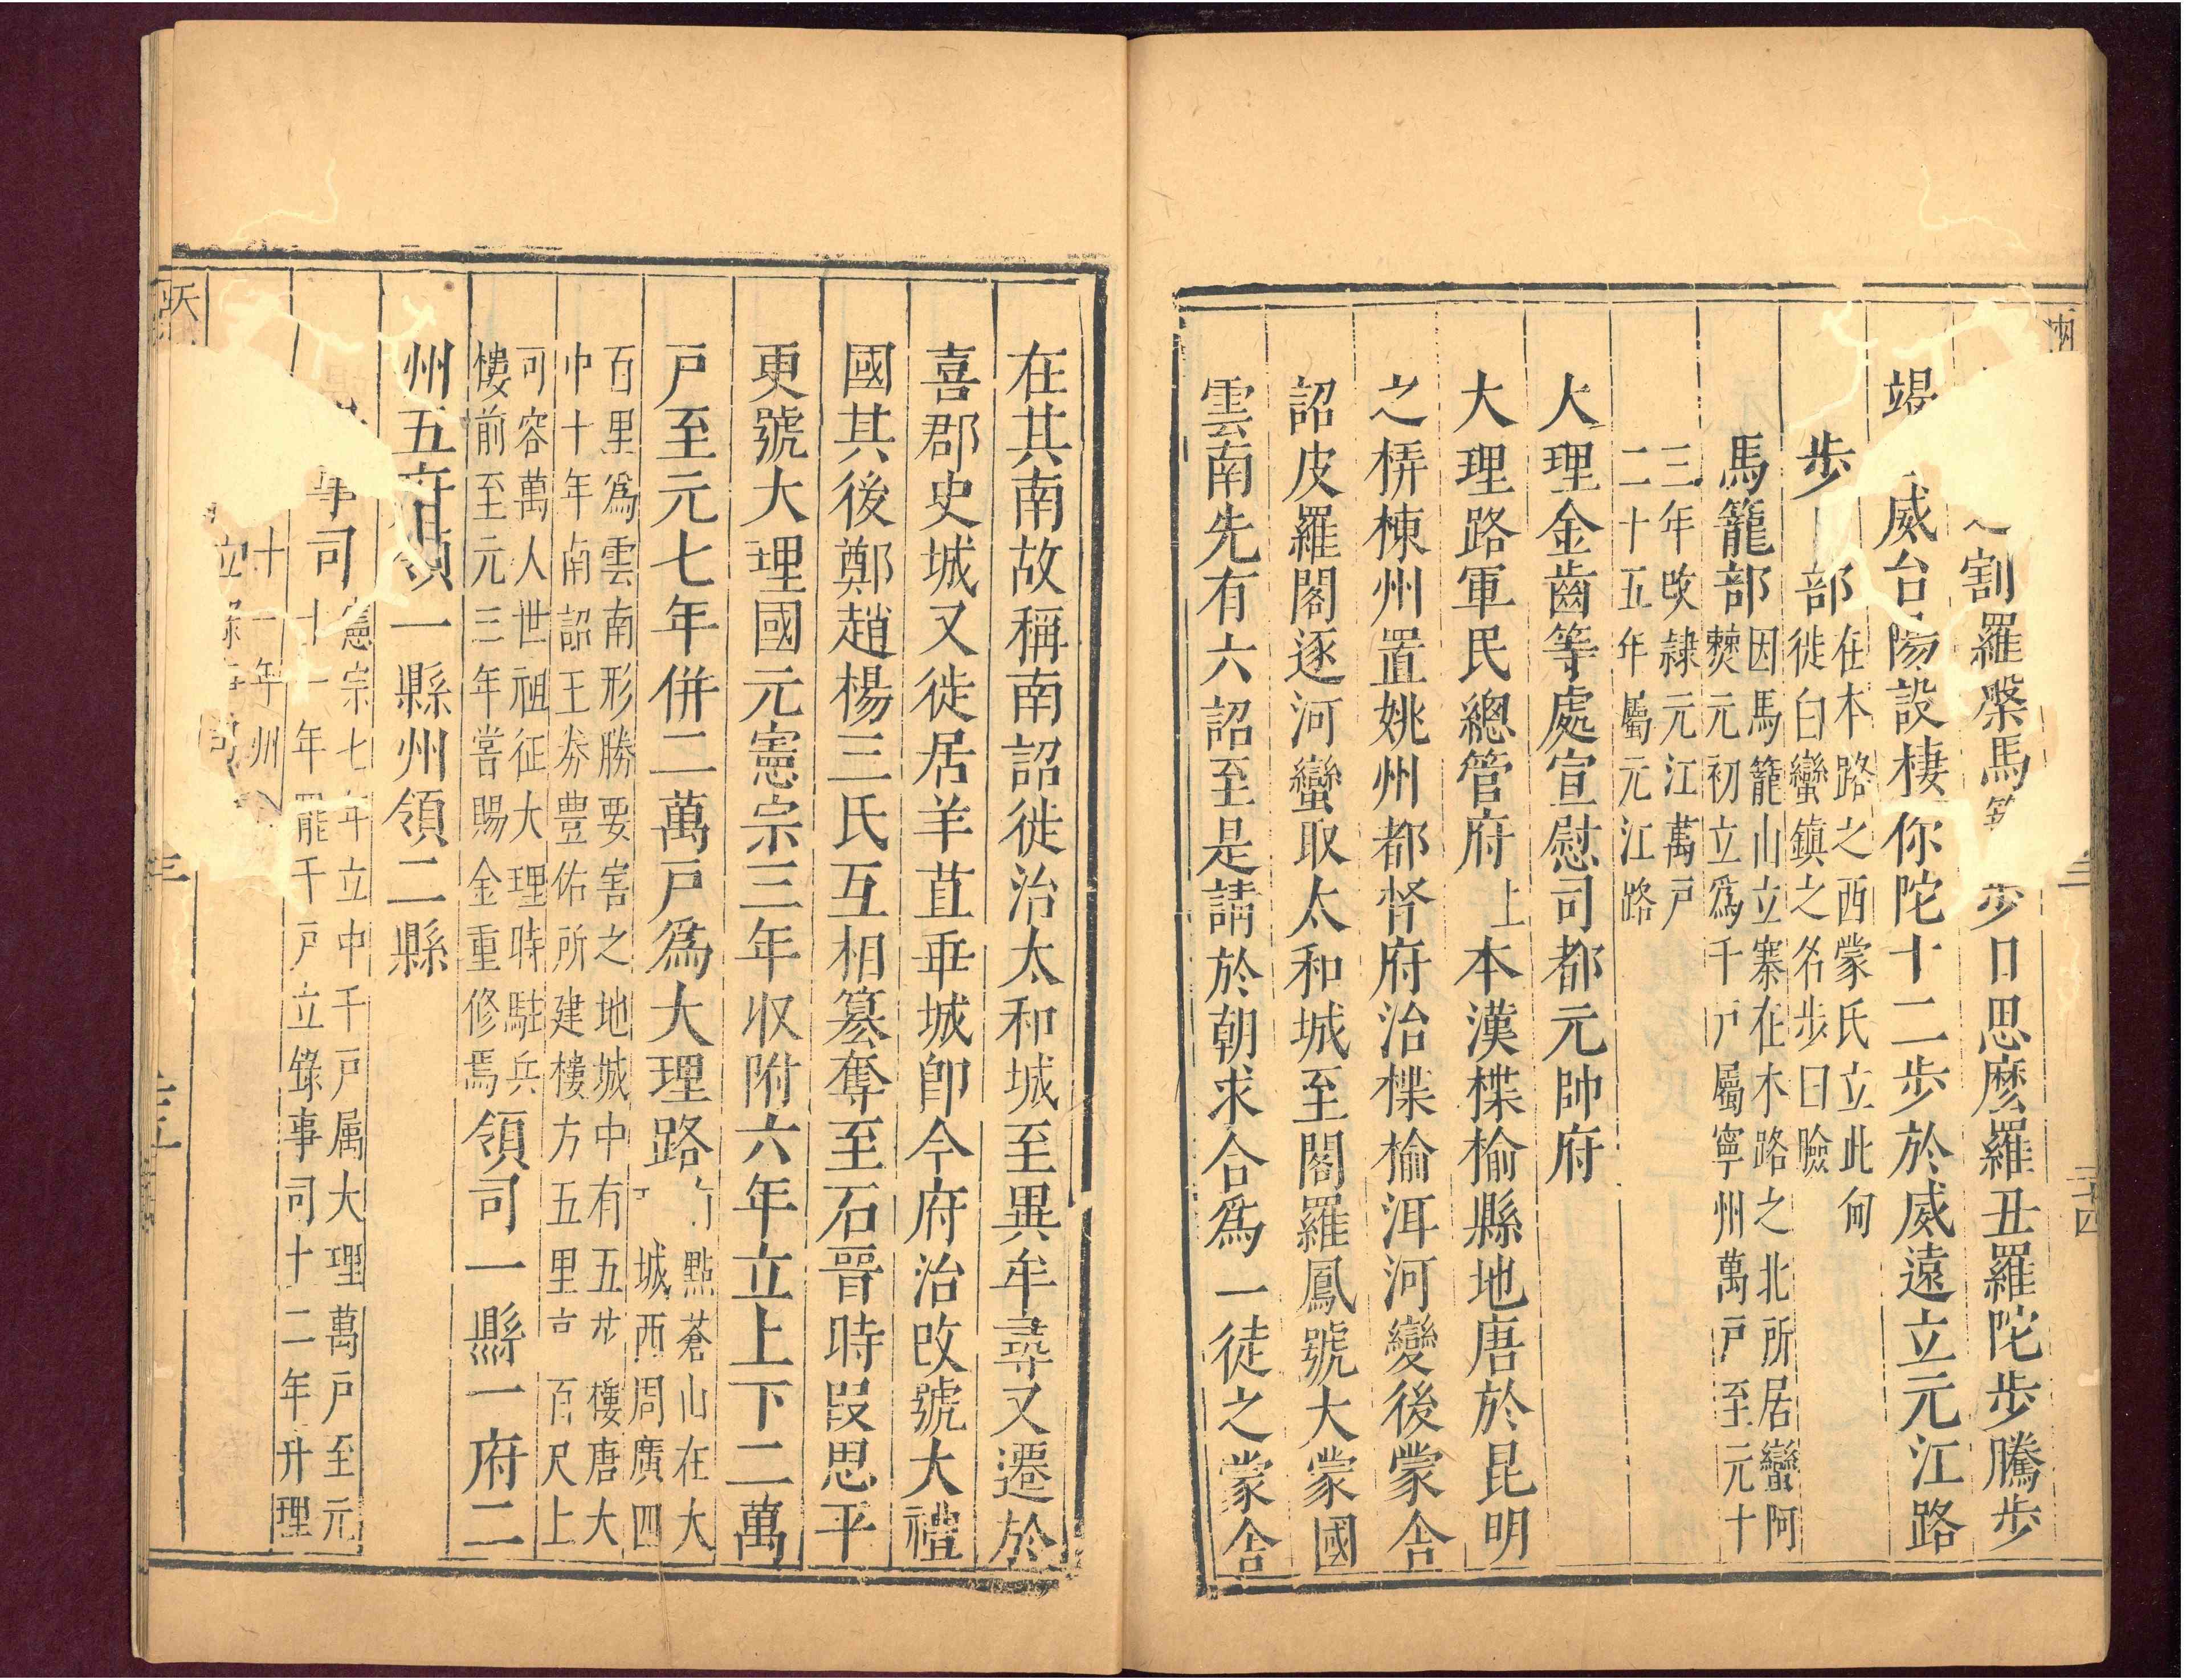 割羅槃馬
步日思麼羅丑羅陀步騰步
竭
威台陽設棲你陀十二步於威遠立元江路
步
部在本路之西蒙氏立此甸
徙白蠻鎮之名步日瞼
馬籠部因馬籠山立寨在木路之北所居蠻阿
㸑元初立爲千戸屬寧州萬戸至元十
三年改隷元江萬戸
二十五年屬元江路
大理金齒等處宣慰司都元帥府
大理路軍民總管府上本漢楪榆縣地唐於昆明
之梇棟州置姚州都督府治楪榆洱河變後蒙舎
詔皮羅閣逐河蠻取太和城至閣羅鳳號大蒙國
雲南先有六詔至是請於朝求合爲一徒之蒙舎
在其南故稱南詔徙治太和城至異牟尋又遷於
喜郡史城又徙居羊苴乖城卽今府治改號大禮
國其後鄭趙楊三氏互相簒奪至石晉時叚思平
更號大理國元憲宗三年收附六年立上下二萬
戸至元七年併二萬戸爲大理路
點蒼山在大
城西周廣四
百里爲雲南形勝要害之地城中有五
樓唐大
中十年南詔王券豐佑所建樓方五里
百尺上
可容萬人世祖征大理時駐兵
樓前至元三年嘗賜金重修焉領司一縣一府二
州五府領一縣州領二縣
事司憲宗七年立中千戸属大理萬戸至元
十一年罷千戸立錄事司十二年升理
十一年州
立
三